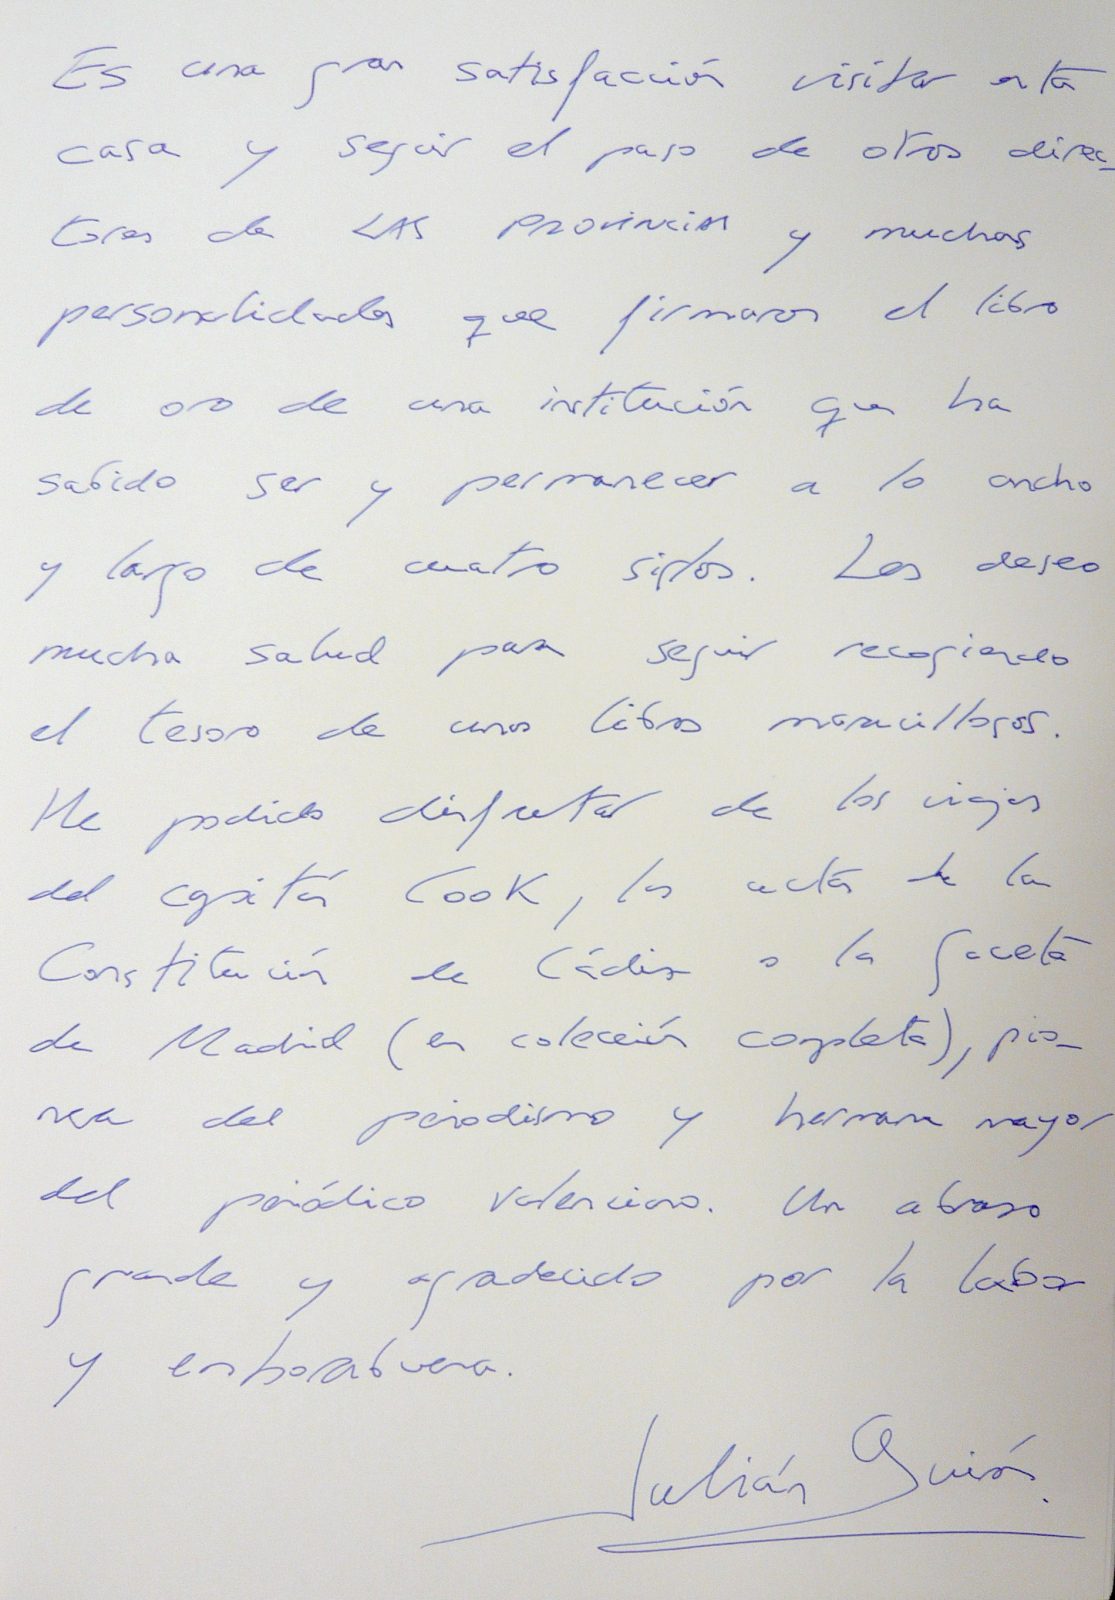 Es una gran satisfacción visitar esta
casa y seguir el paso de otros direc-
tores de LAS PROVINCIAS y muchas
personalidades que firmaron el libro
de oro de una institución que ha
sabido ser y permanecer a lo ancho
y largo de cuatro siglos. Les deseo
mucha salud para seguir recogiendo
el tesoro de unos libros maravillosos.
He podido disfrutar de los viajes
del capitán Cook, las actas de la
Constitución de Cádiz o la Gaceta
de Madrid (en colección completa), pio-
nera del periodismo y hermana mayor
del periódico valenciano. Un abrazo
grande y agradecido por la labor
y enhorabuena.
Julián Quirós.